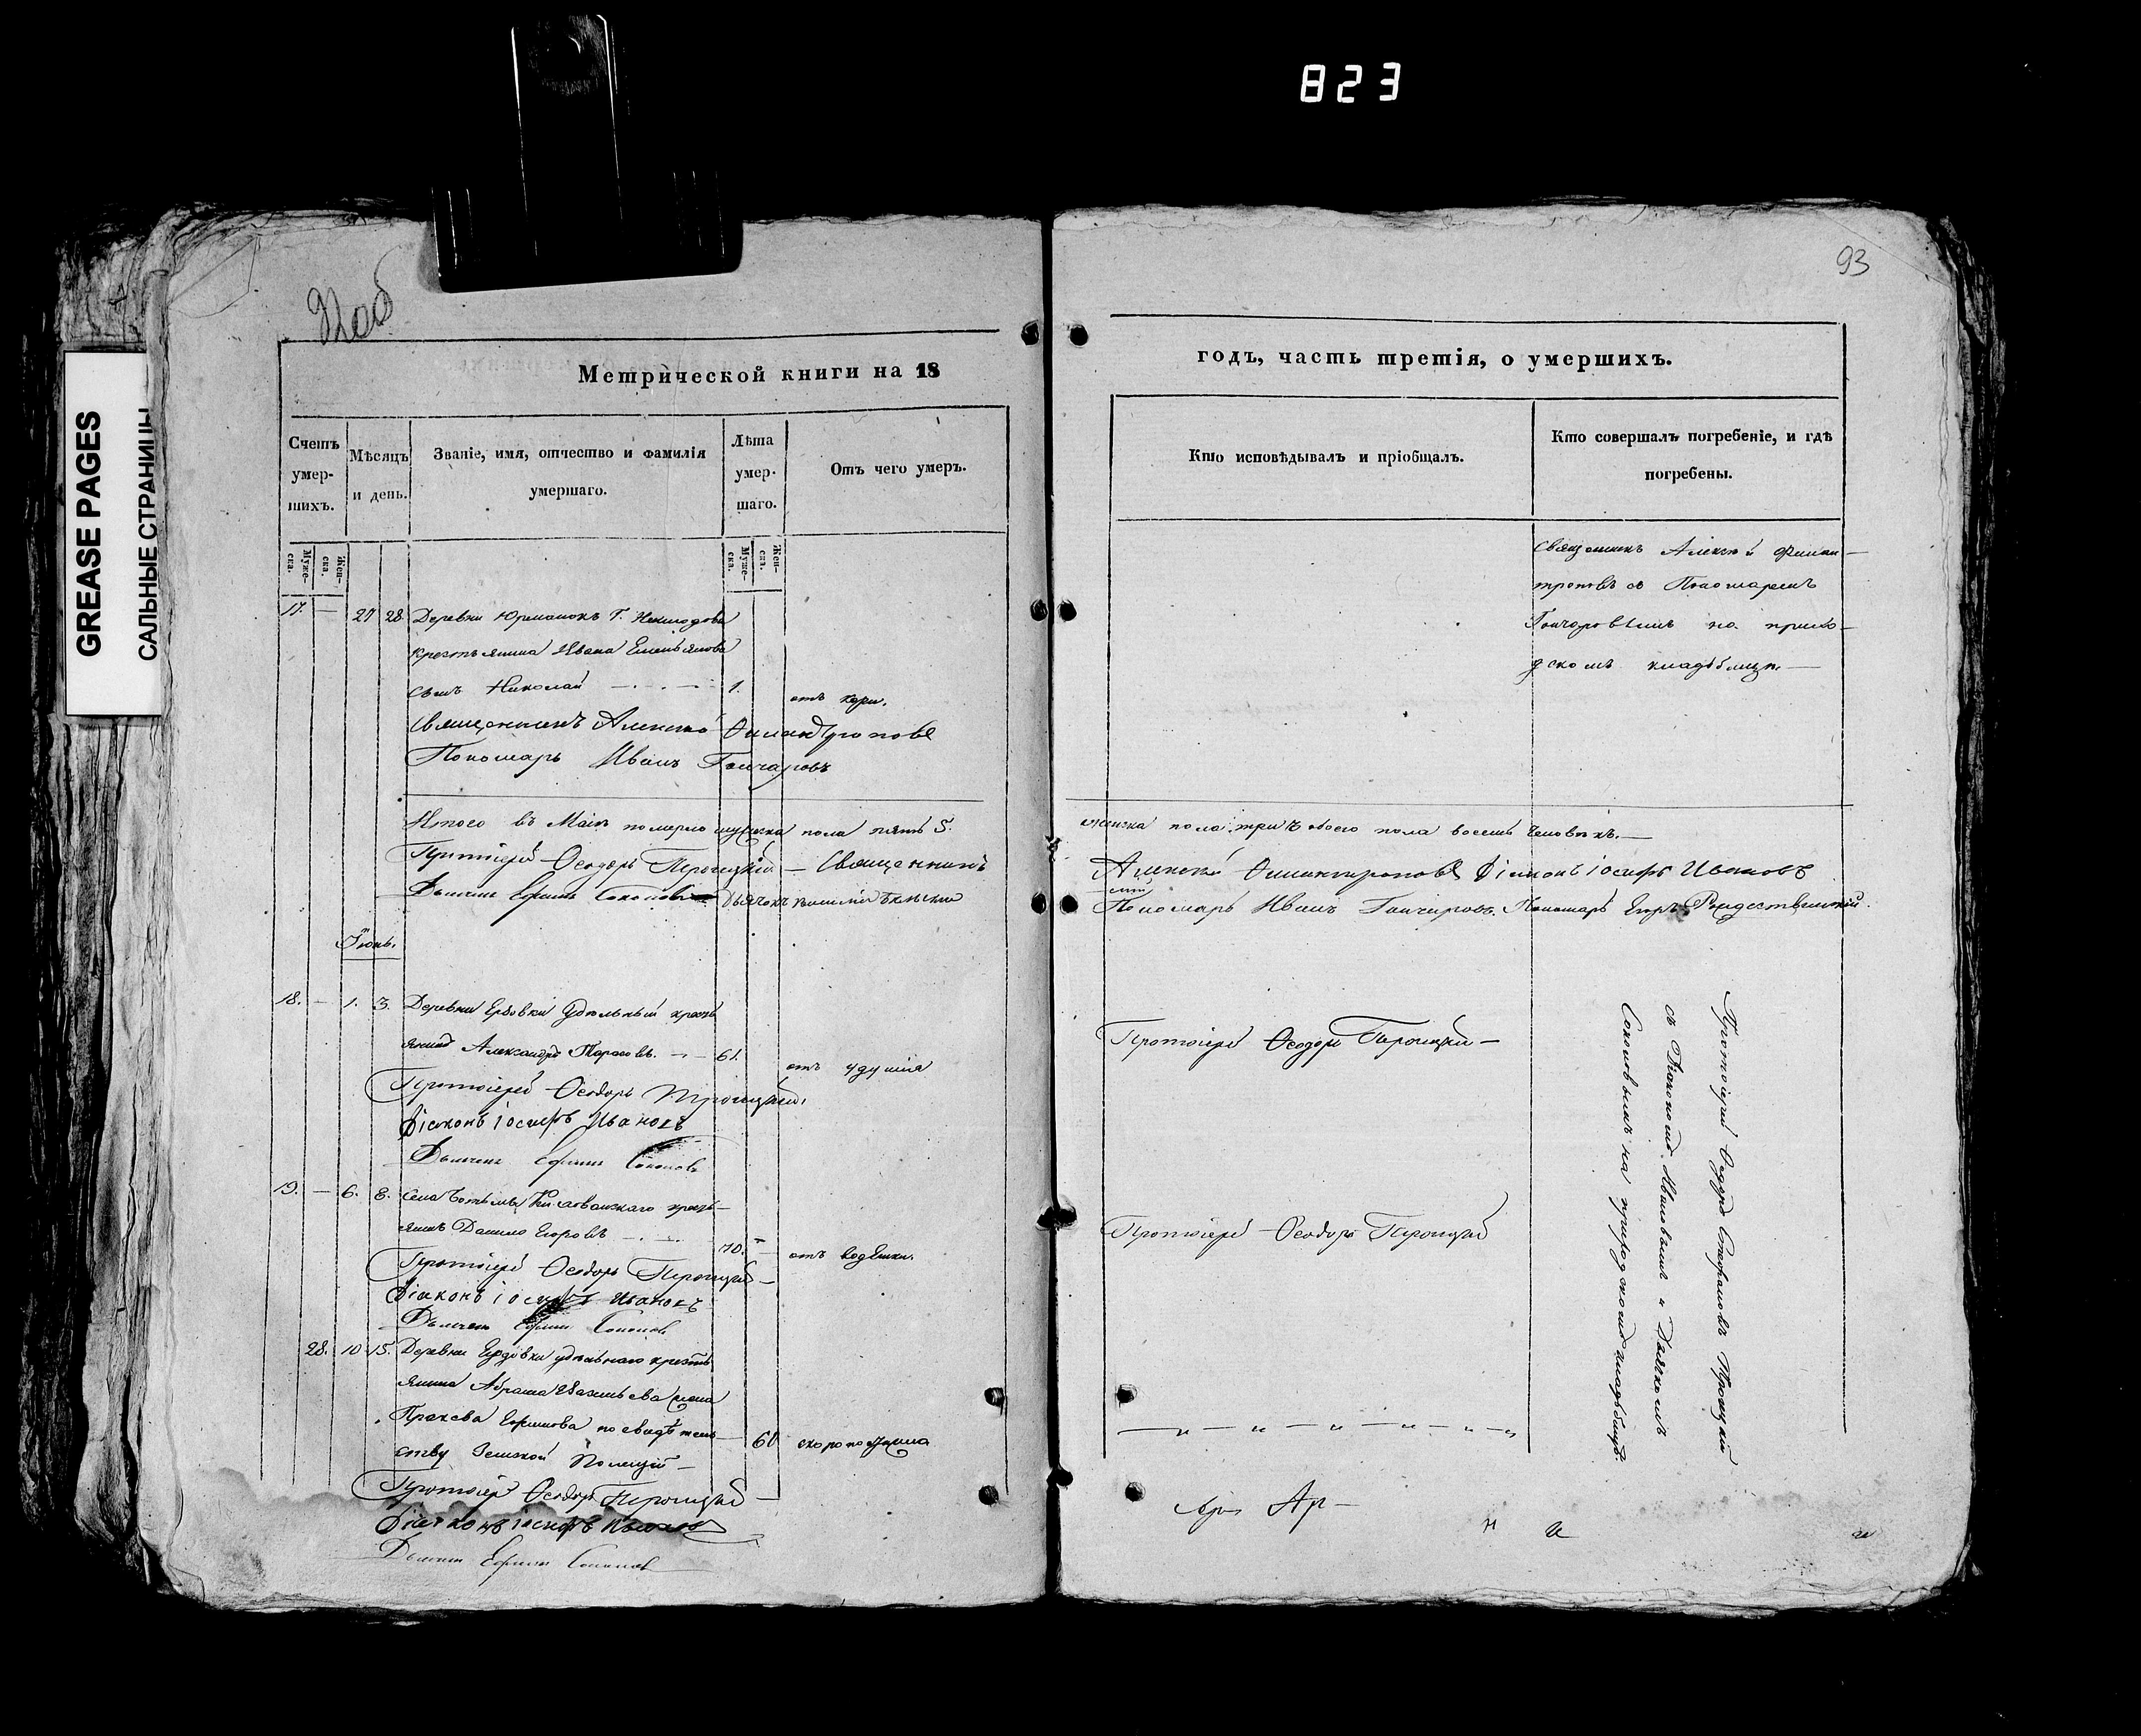 823
GREASE PAGES
САЛЬНЫЕ СТРАНИЦЫ
93
Метрической книги на 18
годъ, часть третія, о умершихъ.
Счетъ умер-шихъ.
Мѣсяцъ и день.
Званіе, имя, отчество и фамилія умершаго.
Лѣта умер-шаго.
Отъ чего умеръ.
Кто исповѣдывалъ и пріобщалъ.
Кто совершалъ погребеніе, и гдѣ погребены.
Муже-ска.
Жен-ска.
Муже-ска.
Жен-ска.
17. — 27 28. Деревни Г.
крестьянина Ивана Емельянова
сынъ Николай — 1. отъ кори.
Священникъ Алексей Филантроповъ
Пономарь Иванъ Гончаровъ
Священникъ Алексей Филан-
троповъ съ Пономаремъ
Гончаровымъ на прихо-
дскомъ кладбищѣ. —
Итого въ Маіѣ померло мужска пола пять 5.
женска пола три обоего пола восемь человѣкъ. —
Протоіерей Ѳеодоръ Троицкій — Священникъ
Алексей Филантроповъ Діаконъ Іосифъ Ивановъ
Дьячекъ Ефимъ Соколовъ Дьячокъ
Пономарь Иванъ Гончаровъ. Пономарь Егоръ Рождественскій.
Іюнь.
18. — 1. 3. Деревни удѣльный кресть
янинъ Александръ Тарасовъ. — 61. отъ удушія
Протоіерей Ѳеодоръ Троицкій.
Діаконъ Іосифъ Ивановъ
Дьячекъ Ефимъ Соколовъ
Протоіерей Ѳеодоръ Троицкій —
19. — 6. 8. села кресть-
янинъ Данило Егоровъ — 70. — отъ водянки.
Протоіерей Ѳеодоръ Троицкій —
Діаконъ Іосифъ Ивановъ
Дьячекъ Ефимъ Соколовъ
Протоіерей Ѳеодоръ Троицкій
28. 10 15. Деревни удѣльнаго кресть
янина Абрама Васильева жена
Ефимова по свидѣтель-
ству Земской Полиціи — 60 скоропостижно
Протоіерей Ѳеодоръ Троицкій —
Діаконъ Іосифъ Ивановъ
Дьячекъ Ефимъ Соколовъ
— „ — „ — „ — „ — „ — „
Протоіерей Ѳеодоръ Стефановъ Троицкій
съ Діакономъ Ивановымъ и Дьячкомъ
Соколовымъ на приходскомъ кладбищѣ.